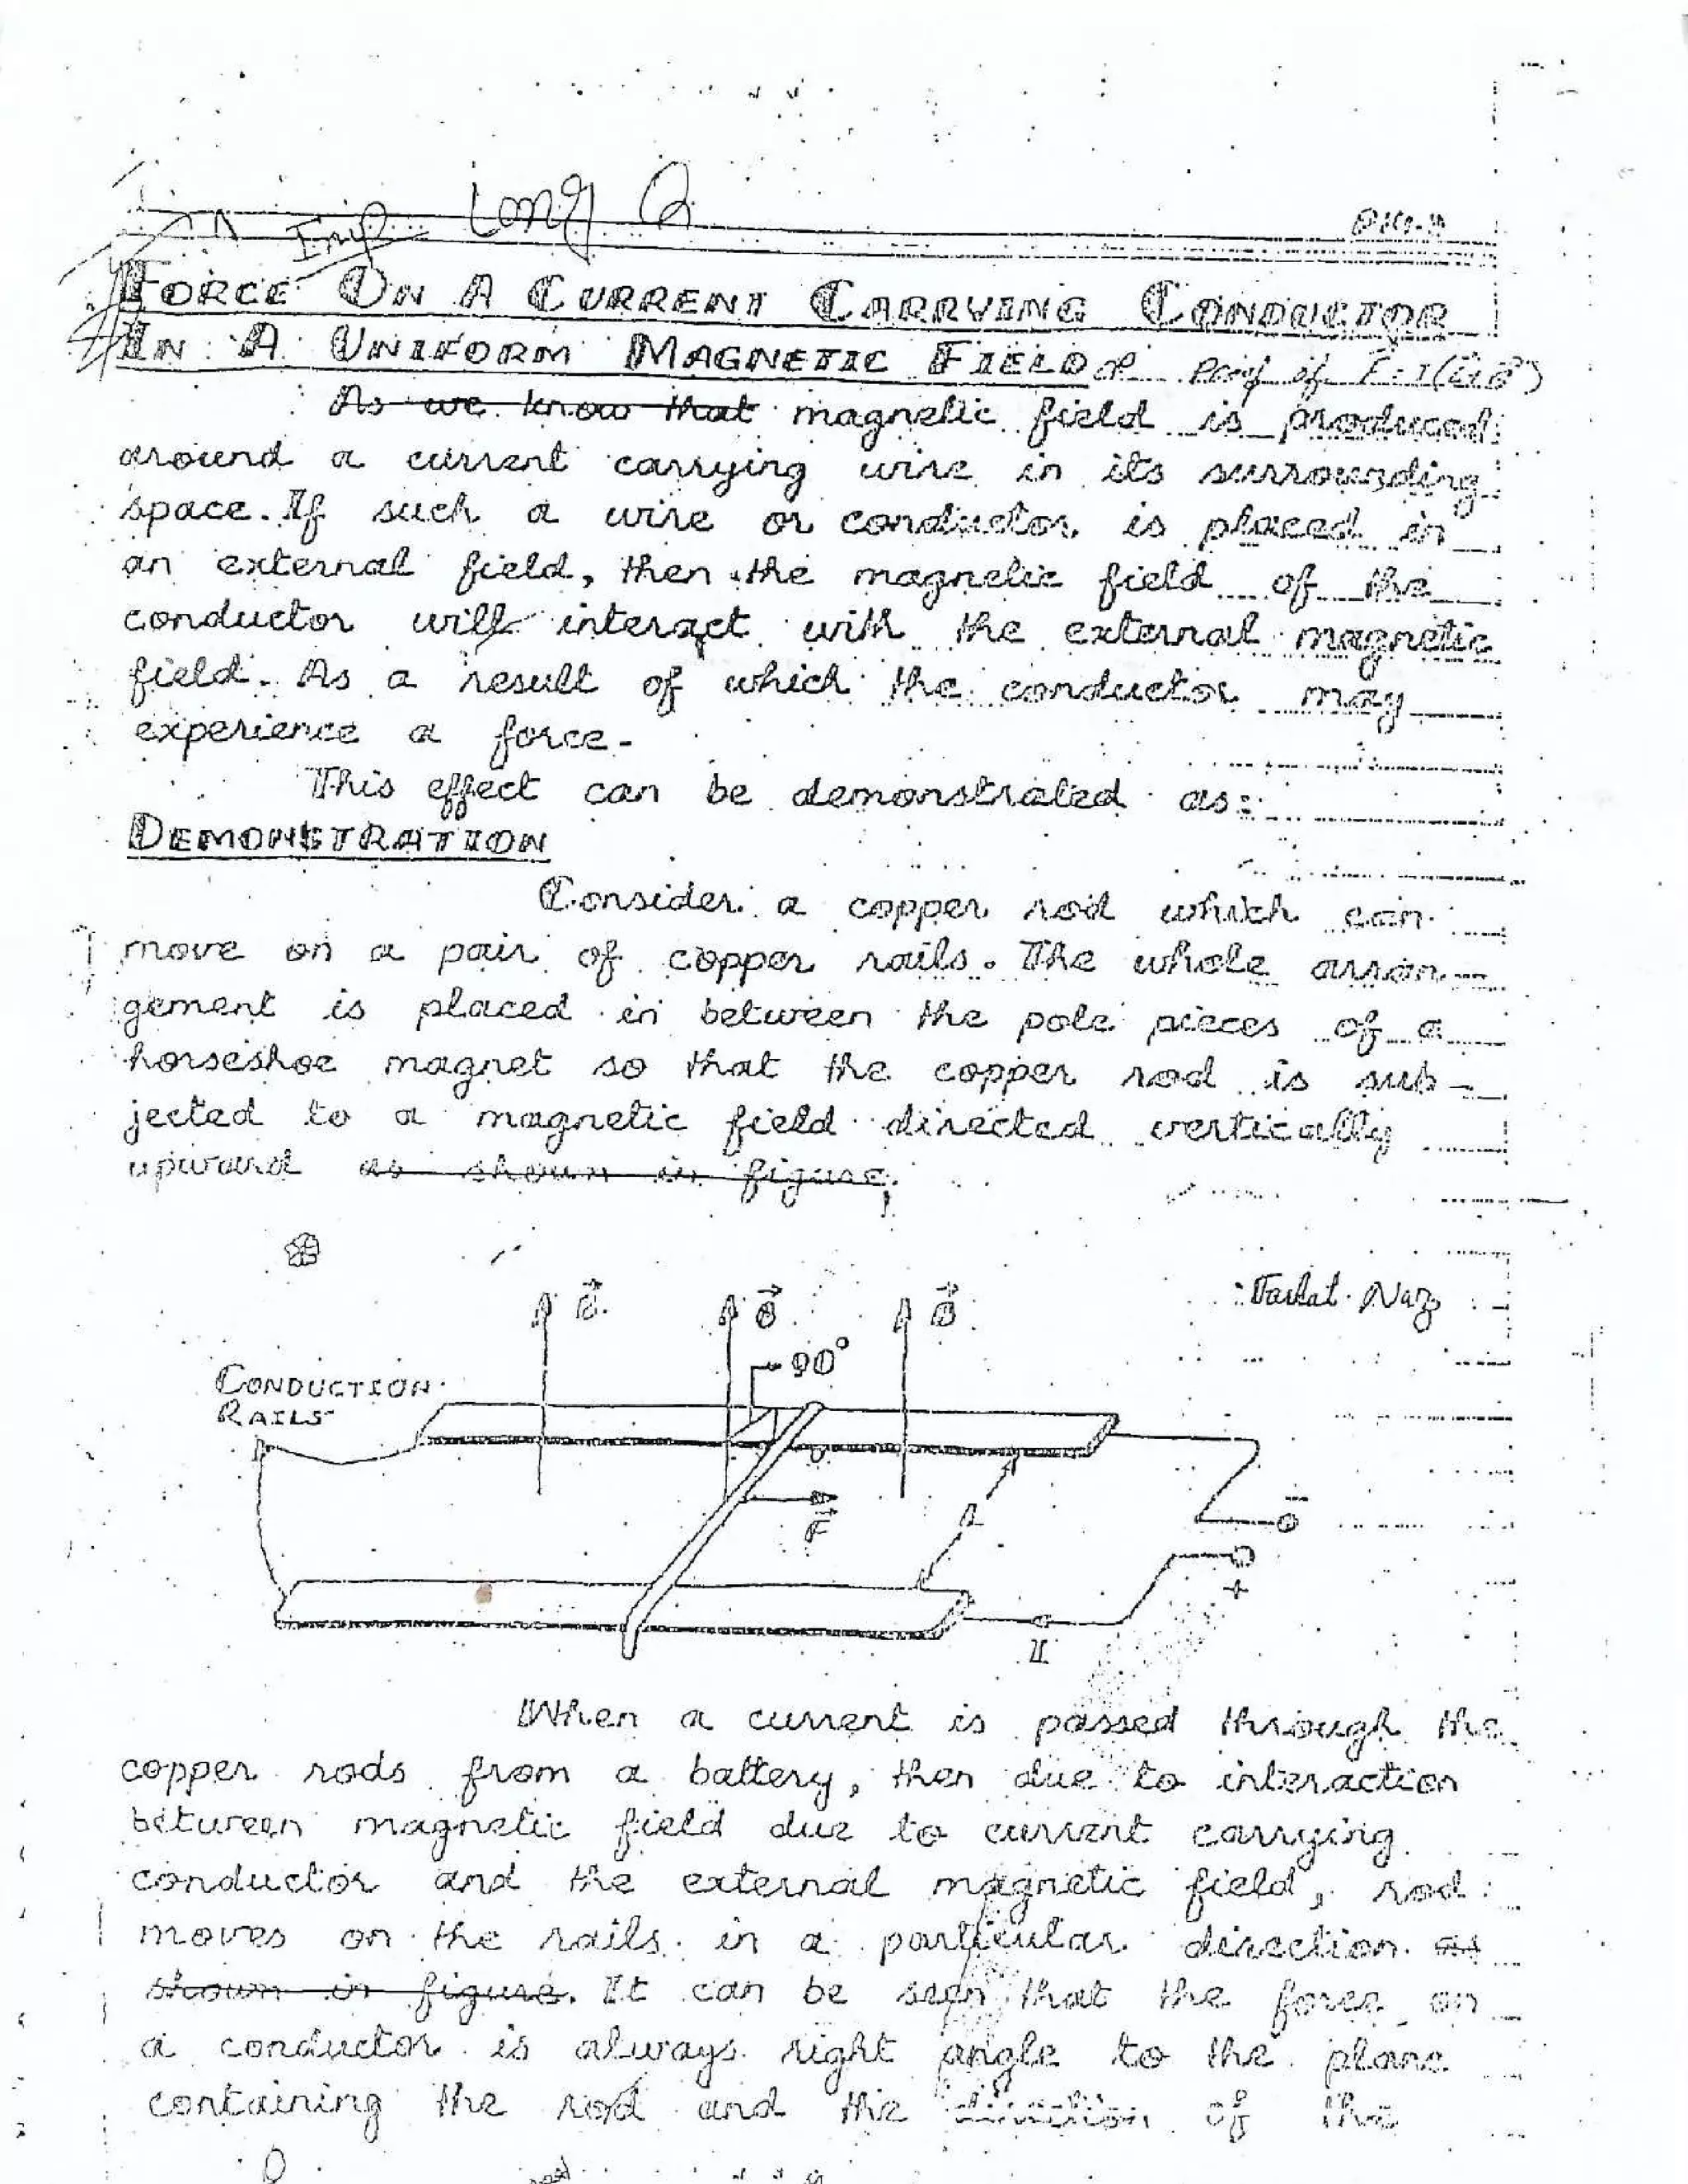 Imp Long Q
FORCE ON A CURRENT CARRYING CONDUCTOR
IN A UNIFORM MAGNETIC FIELD or Proof of F=I(L×B)
As we know that magnetic field is produced
around a current carrying wire in its surrounding
space. If such a wire or conductor is placed in
an external field, then the magnetic field of the
conductor will interact with the external magnetic
field. As a result of which the conductor may
experience a force.
This effect can be demonstrated as:
DEMONSTRATION
Consider a copper rod which can
move on a pair of copper rails. The whole arran-
gement is placed in between the pole pieces of a
horseshoe magnet so that the copper rod is sub-
jected to a magnetic field directed vertically
upward as shown in figure.
Naz
B B B
90°
CONDUCTION
RAILS
F
-
+
I
When a current is passed through the
copper rods from a battery, then due to interaction
between magnetic field due to current carrying
conductor and the external magnetic field, rod
moves on the rails in a particular direction as
shown in figure. It can be seen that the force on
a conductor is always right angle to the plane
containing the rod and the direction of the